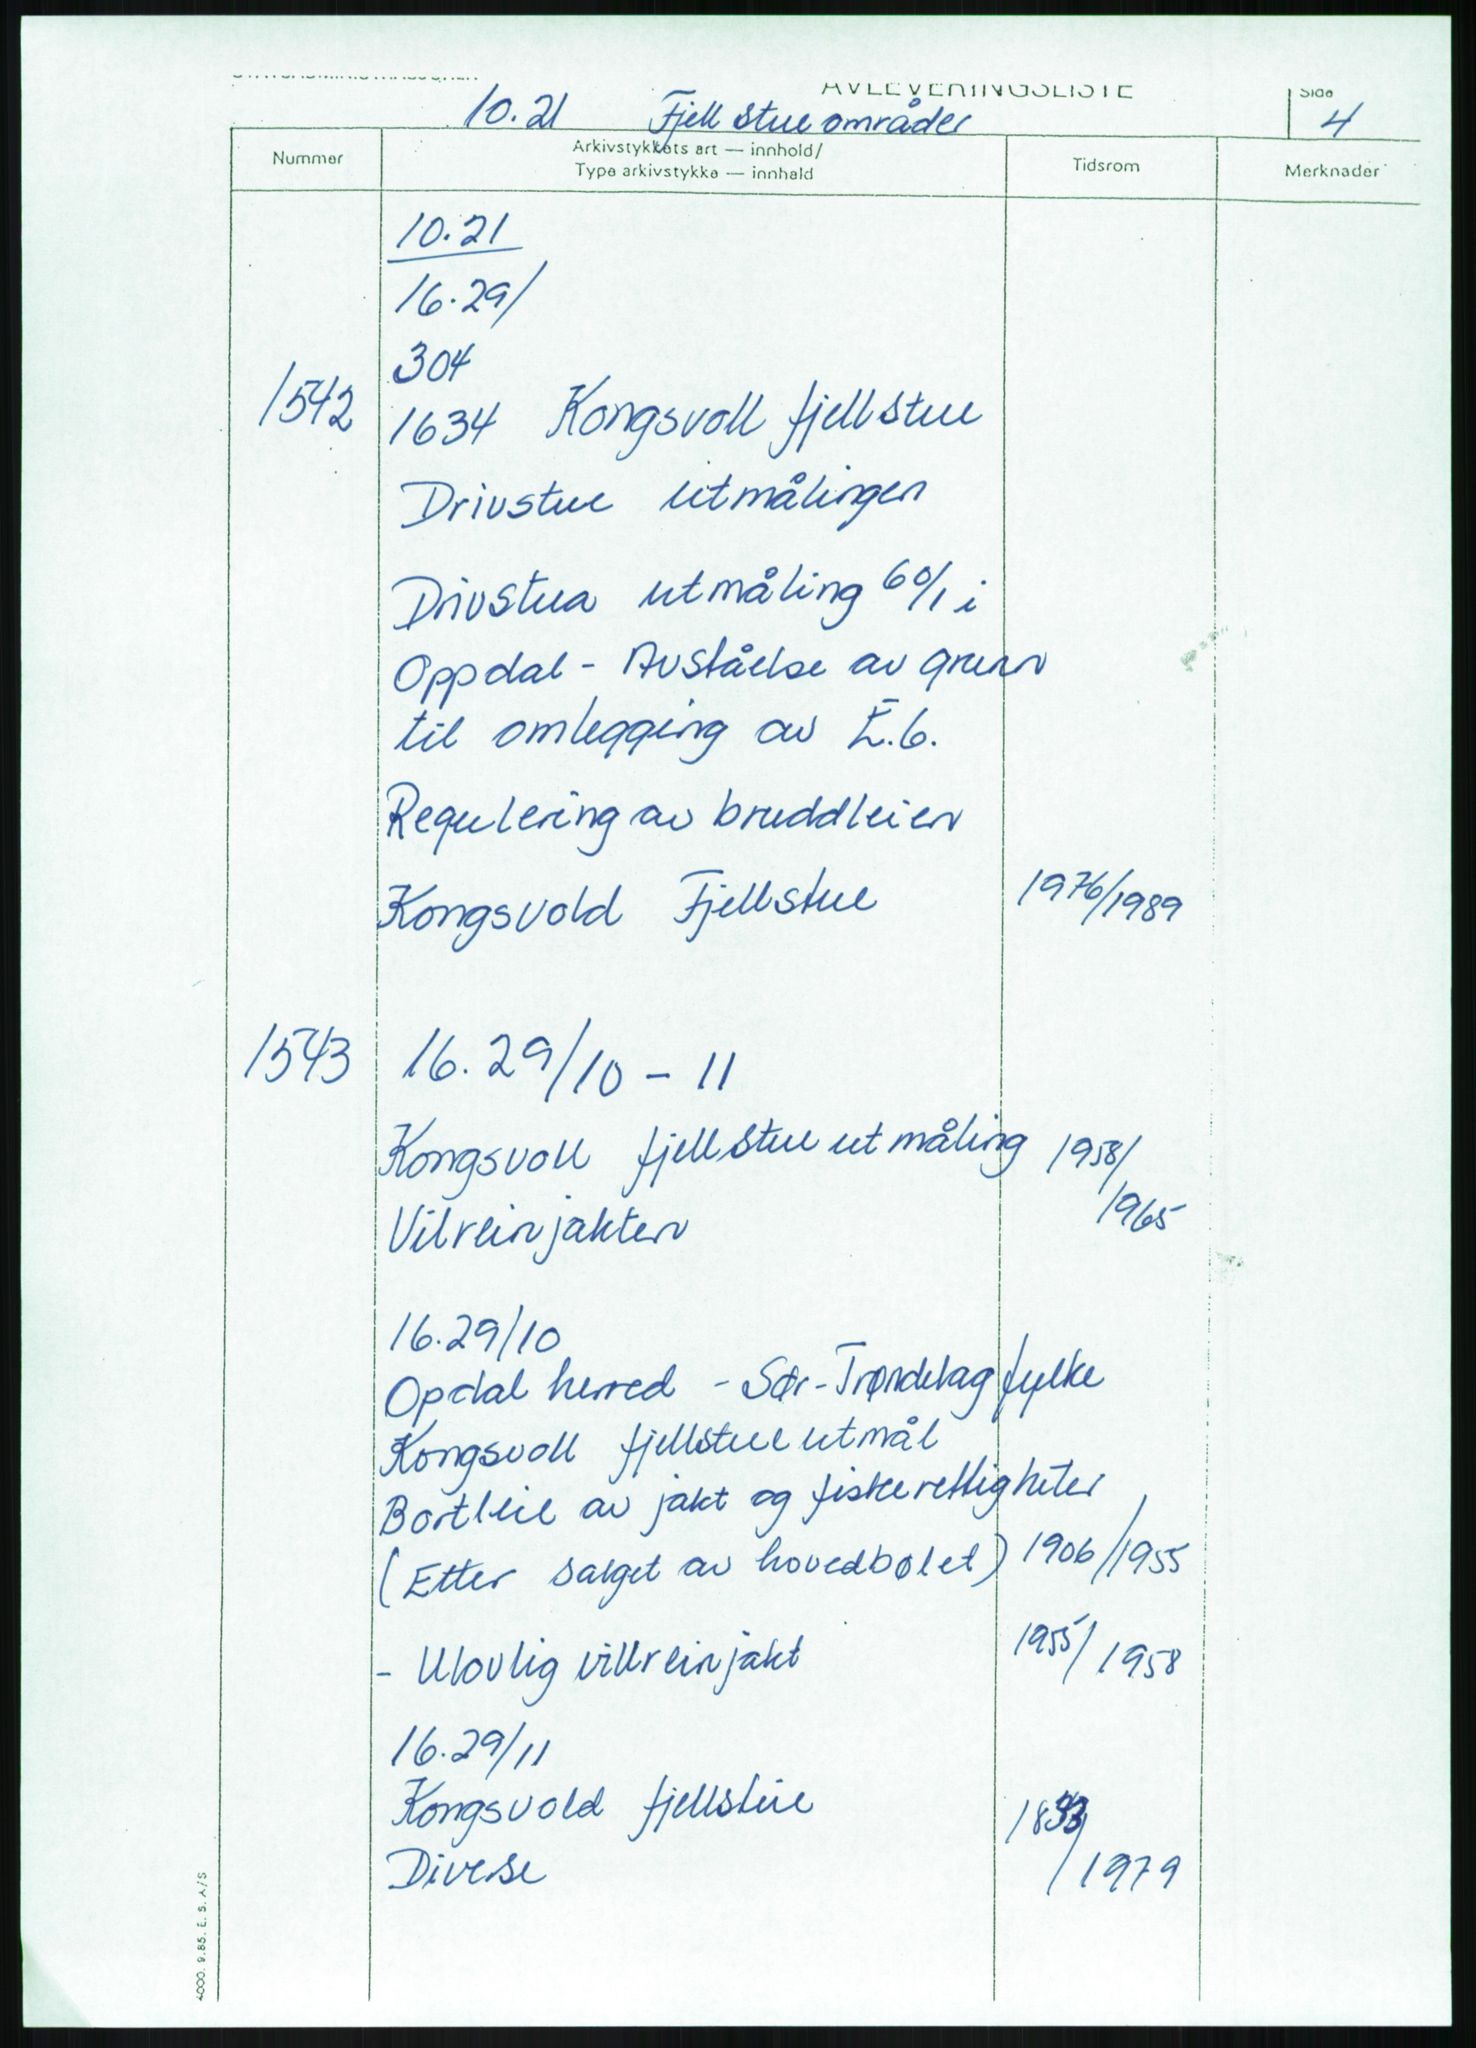 AVLEVERINGSLISTE
Side
10.21 Fjellstueområder 4
Nummer
Arkivstykkets art — innhold/
Type arkivstykke — innhald
Tidsrom
Merknader
10.21
16.29/
304
1542 1634 Kongsvoll fjellstue
Drivstue utmålingen
Drivstua utmåling 60/1 i
Oppdal - Avståelse av grunn
til omlegging av E.6.
Regulering av bruddleien
Kongsvold Fjellstue 1976/1989
1543 16.29/10 - 11
Kongsvoll fjellstue utmåling 1958/
1965
Vilreinjakten
16.29/10
Opdal herred - Sør-Trøndelag fylke
Kongsvoll fjellstue utmål
Bortleie av jakt og fiskerettigheter
(Etter salget av hovedbølet) 1906/1955
- Ulovlig villreinjakt 1955/1958
16.29/11
Kongsvold fjellstue
Diverse /1979
4000. 9.85. E. S. A/S